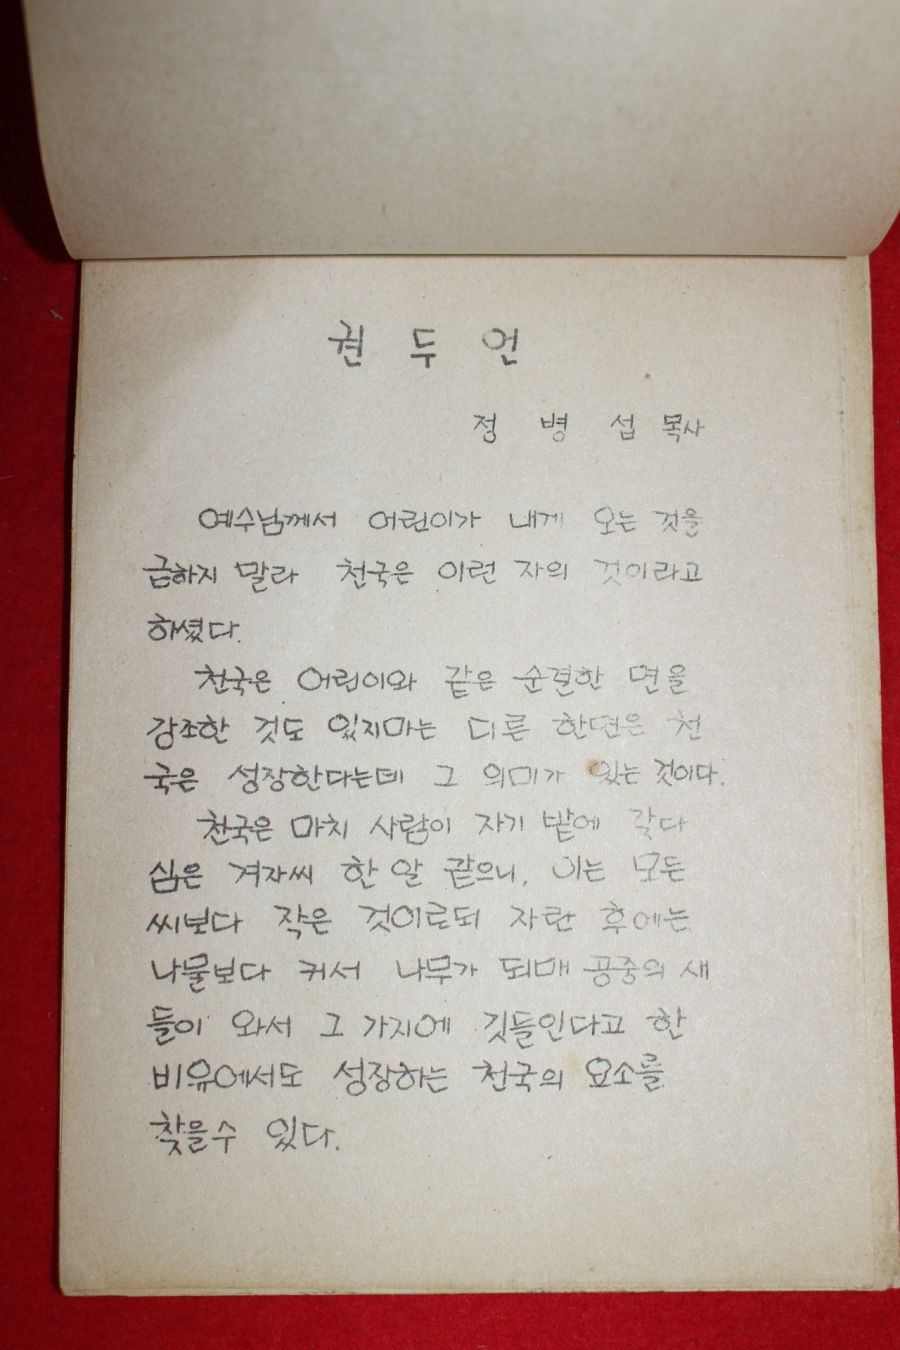 권 두 언
정 병 섭 목사
예수님께서 어린이가 내게 오는 것을
금하지 말라 천국은 이런 자의 것이라고
하셨다.
천국은 어린이와 같은 순결한 면을
강조한 것도 있지마는 다른 한면은 천
국은 성장한다는데 그 의미가 있는 것이다.
천국은 마치 사람이 자기 밭에 갖다
심은 겨자씨 한 알 같으니, 이는 모든
씨보다 작은 것이로되 자란 후에는
나물보다 커서 나무가 되매 공중의 새
들이 와서 그 가지에 깃들인다고 한
비유에서도 성장하는 천국의 요소를
찾을수 있다.